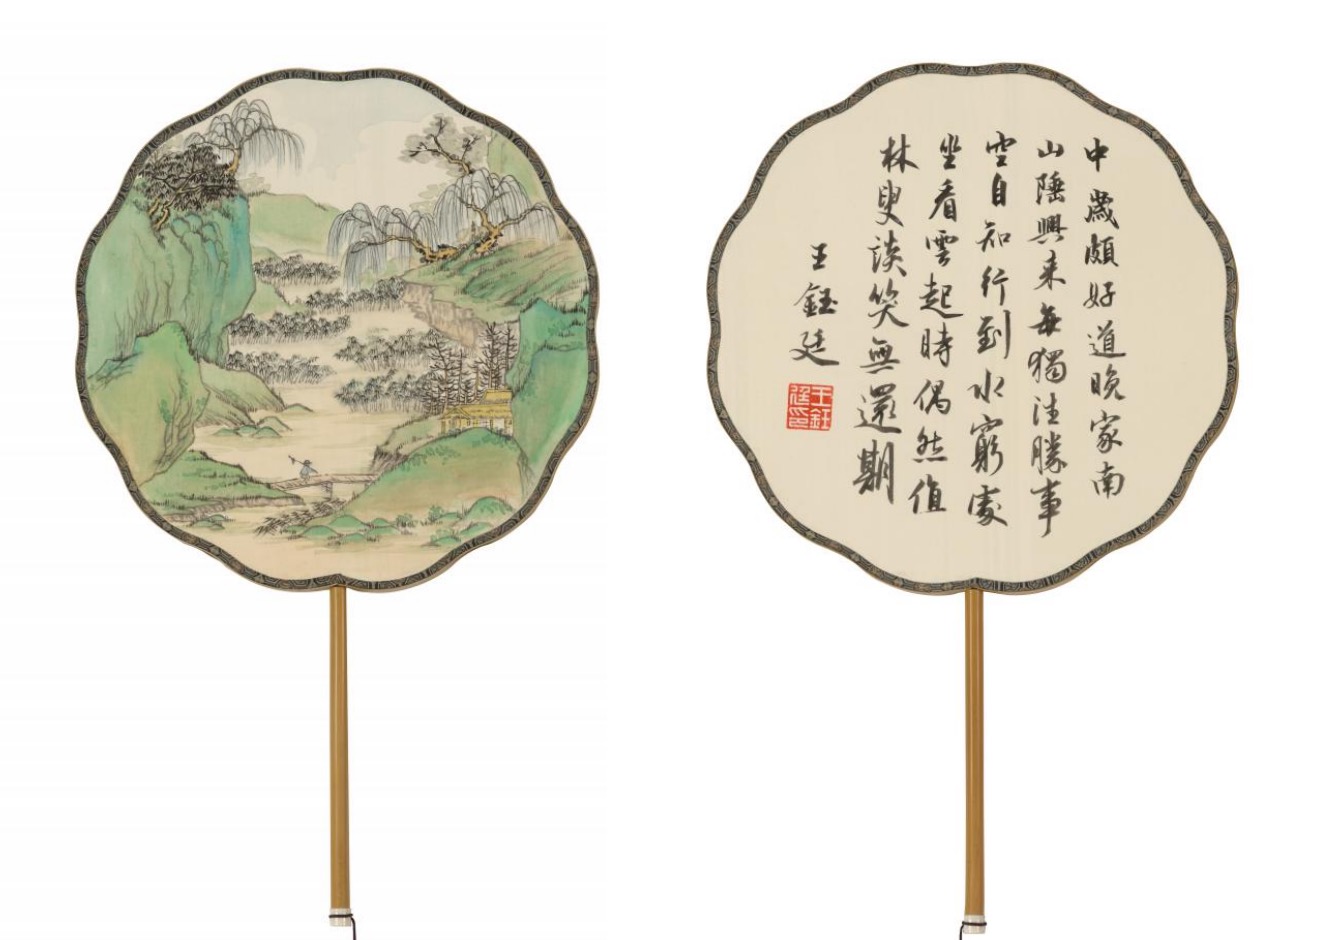 中歲頗好道晚家南
山陲興來每獨往勝事
空自知行到水窮處
坐看雲起時偶然值
林叟談笑無還期
王鈺廷
王鈺
廷印